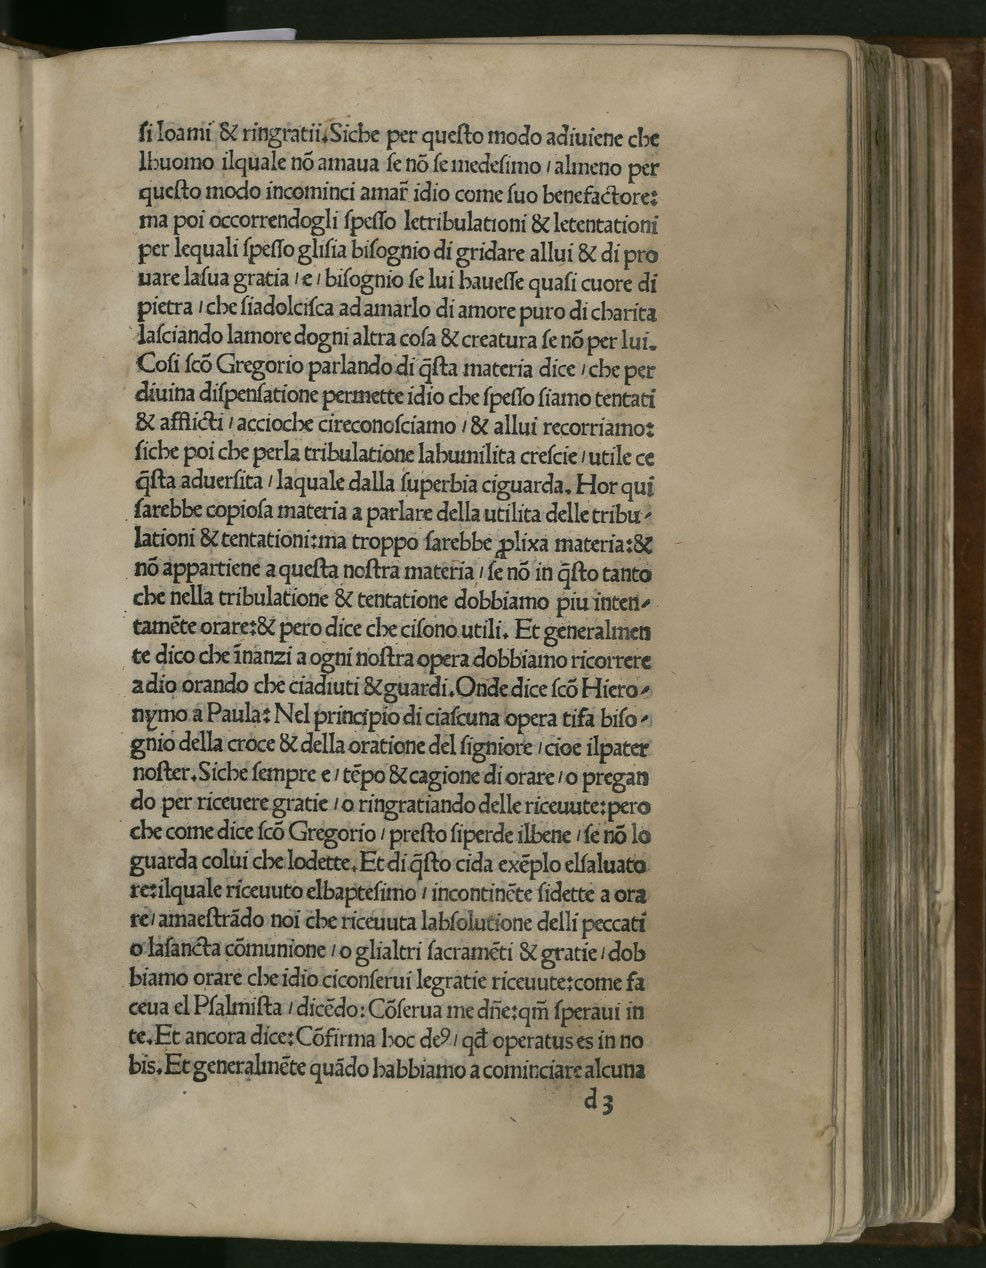 ſi loami & ringratii.Siche per queſto modo adiuiene che
lhuomo ilquale nō amaua ſe nō ſe medeſimo / almeno per
queſto modo incominci amar̄ idio come ſuo benefactore:
ma poi occorrendogli ſpeſſo letribulationi & letentationi
per lequali ſpeſſo gliſia biſognio di gridare allui & di pro
uare laſua gratia / e / biſognio ſe lui haueſſe quaſi cuore di
pietra / che ſiadolciſca ad amarlo di amore puro di charita
laſciando lamore dogni altra coſa & creatura ſe nō per lui.
Coſi ſcō Gregorio parlando di q̄ſta materia dice / che per
diuina diſpenſatione permette idio che ſpeſſo ſiamo tentati
& afflicti / accioche cireconoſciamo / & allui recorriamo:
ſiche poi che perla tribulatione lahumilita creſcie / utile ce
q̄ſta aduerſita / laquale dalla ſuperbia ciguarda. Hor qui
ſarebbe copioſa materia a parlare della utilita delle tribu-
lationi & tentationi:ma troppo ſarebbe ꝓlixa materia:&
nō appartiene a queſta noſtra materia / ſe nō in q̄ſto tanto
che nella tribulatione & tentatione dobbiamo piu inten-
tamēte orare:& pero dice che ciſono utili. Et generalmen
te dico che īnanzi a ogni noſtra opera dobbiamo ricorrere
a dio orando che ciadiuti & guardi.Onde dice ſcō Hiero-
nymo a Paula: Nel principio di ciaſcuna opera tifa biſo-
gnio della croce & della oratione del ſigniore / cioe ilpater
noſter.Siche ſempre e / tēpo & cagione di orare / o pregan
do per riceuere gratie / o ringratiando delle riceuute:pero
che come dice ſcō Gregorio / preſto ſiperde ilbene / ſe nō lo
guarda colui che lodette.Et di q̄ſto cida exēplo elſaluato
re:ilquale riceuuto elbapteſimo / incontinēte ſidette a ora
re / amaeſtrādo noi che riceuuta labſolutione delli peccati
o laſancta cōmunione / o glialtri ſacramēti & gratie / dob
biamo orare che idio ciconſerui legratie riceuute:come fa
ceua el Pſalmiſta / dicēdo: Cōſerua me dn̄e:qm̄ ſperaui in
te.Et ancora dice: Cōfirma hoc deꝰ / qd̄ operatus es in no
bis.Et generalmēte quādo habbiamo a cominciare alcuna
d 3